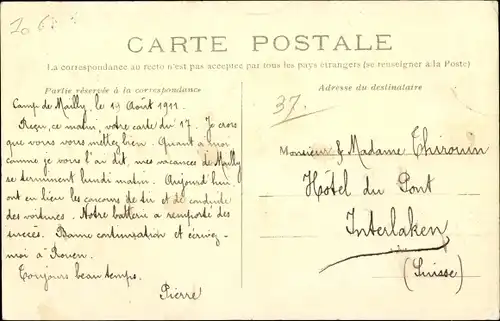 CARTE POSTALE
La correspondance au recto n'est pas acceptée par tous les pays étrangers (se renseigner à la Poste)
Partie réservée à la correspondance
Adresse du destinataire
37.
Camp de Mailly, le 19 Août 1911.
Reçu, ce matin, votre carte du 17. Je crois
que vous vous mettez bien. Quant à moi
comme je vous l'ai dit, mes vacances de Mailly
se terminent lundi matin. Aujourd'hui
ont eu lieu les concours de tir et de conduite
des voitures. Notre batterie a remporté des
succès. Bonne continuation et écrivez-
moi à Rouen.
Toujours beau temps.
Pierre
Monsieur & Madame Thirouin
Hôtel du Pont
Interlaken
(Suisse)